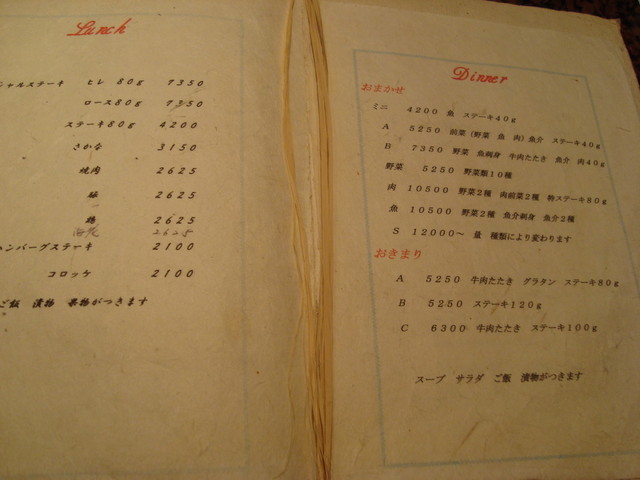 Lunch
シャルステーキ ヒレ 80g 7350
ロース80g 7350
ステーキ80g 4200
さかな 3150
焼肉 2625
豚 2625
鶏 2625
2625
ハンバーグステーキ 2100
コロッケ 2100
ご飯 漬物 果物がつきます
Dinner
おまかせ
ミニ 4200 魚 ステーキ40g
A 5250 前菜(野菜 魚 肉)魚介 ステーキ40g
B 7350 野菜 魚刺身 牛肉たたき 魚介 肉40g
野菜 5250 野菜類10種
肉 10500 野菜2種 肉前菜2種 特ステーキ80g
魚 10500 野菜2種 魚介刺身 魚介2種
S 12000～ 量 種類により変わります
おきまり
A 5250 牛肉たたき グラタン ステーキ80g
B 5250 ステーキ120g
C 6300 牛肉たたき ステーキ100g
スープ サラダ ご飯 漬物がつきます